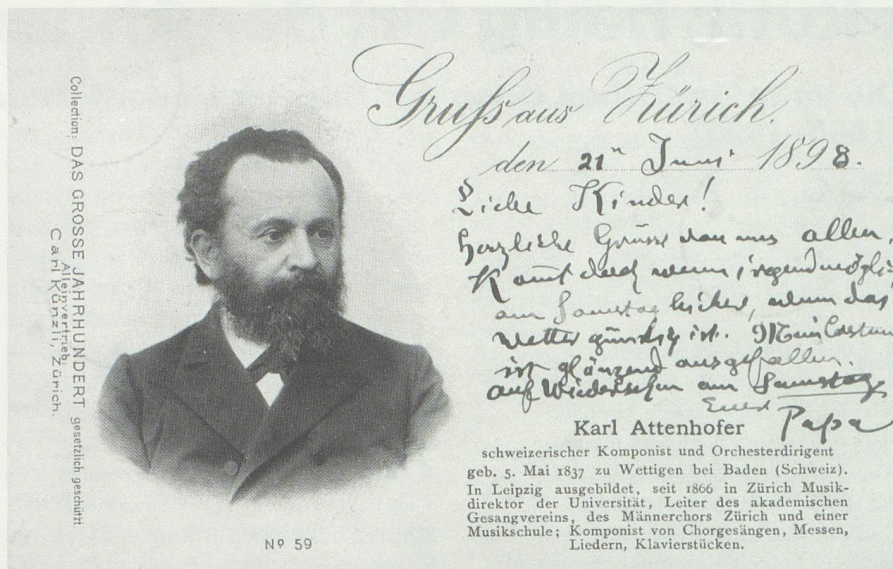 Collection: DAS GROSSE JAHRHUNDERT gesetzlich geschützt
Alleinvertrieb:
Carl Künzli, Zürich.
Gruss aus Zürich.
den 21ⁿ Juni 1898.
Liebe Kinder!
Herzliche Grüsse von uns allen.
Kommt doch wenn irgend mögli
am Samstag hieher, wenn das
Wetter günstig ist.
ist glänzend ausgefallen.
auf Wiedersehen am Samstag
Euer Papa
Karl Attenhofer
schweizerischer Komponist und Orchesterdirigent
geb. 5. Mai 1837 zu Wettigen bei Baden (Schweiz).
In Leipzig ausgebildet, seit 1866 in Zürich Musik-
direktor der Universität, Leiter des akademischen
Gesangvereins, des Männerchors Zürich und einer
Musikschule; Komponist von Chorgesängen, Messen,
Liedern, Klavierstücken.
Nº 59